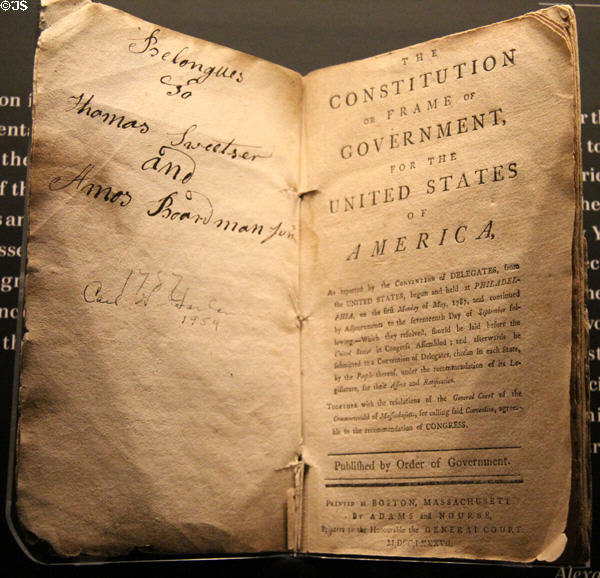 ©JS
Belongues
To
Thomas Sweetser
and
Amos Boardman Junr
1787
Carl
1959
THE
CONSTITUTION
OR FRAME OF
GOVERNMENT,
FOR THE
UNITED STATES
OF
AMERICA,
As reported by the CONVENTION of DELEGATES, from
the UNITED STATES, begun and held at PHILADEL-
PHIA, on the first Monday of May, 1787, and continued
by Adjournments to the seventeenth Day of September fol-
lowing.—Which they resolved, should be laid before the
United States in Congress Assembled; and afterwards be
submitted to a Convention of Delegates, chosen in each State,
by the People thereof, under the recommendation of its Le-
gislature, for their Assent and Ratification.
TOGETHER with the resolutions of the General Court of the
Commonwealth of Massachusetts, for calling said Convention, agree-
able to the recommendation of CONGRESS.
Published by Order of Government.
PRINTED at BOSTON, MASSACHUSETTS
By ADAMS and NOURSE,
Printers to the Honourable the GENERAL COURT.
M,DCC,LXXXVII.